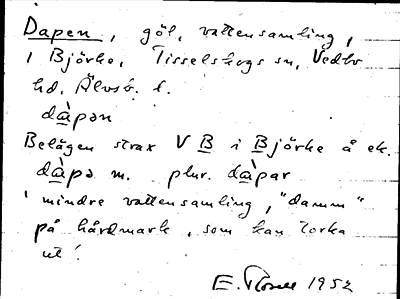 Dapen, göl, vattensamling,
i Björke, Tisselskogs sn, Vedbo
hd. Älvsb. l.
dàpən
Belägen strax V B i Björke å ek.
dàpə m. plur. dàpar
'mindre vattensamling, "damm"
på hårdmark, som kan torka
ut'.
E. 1952